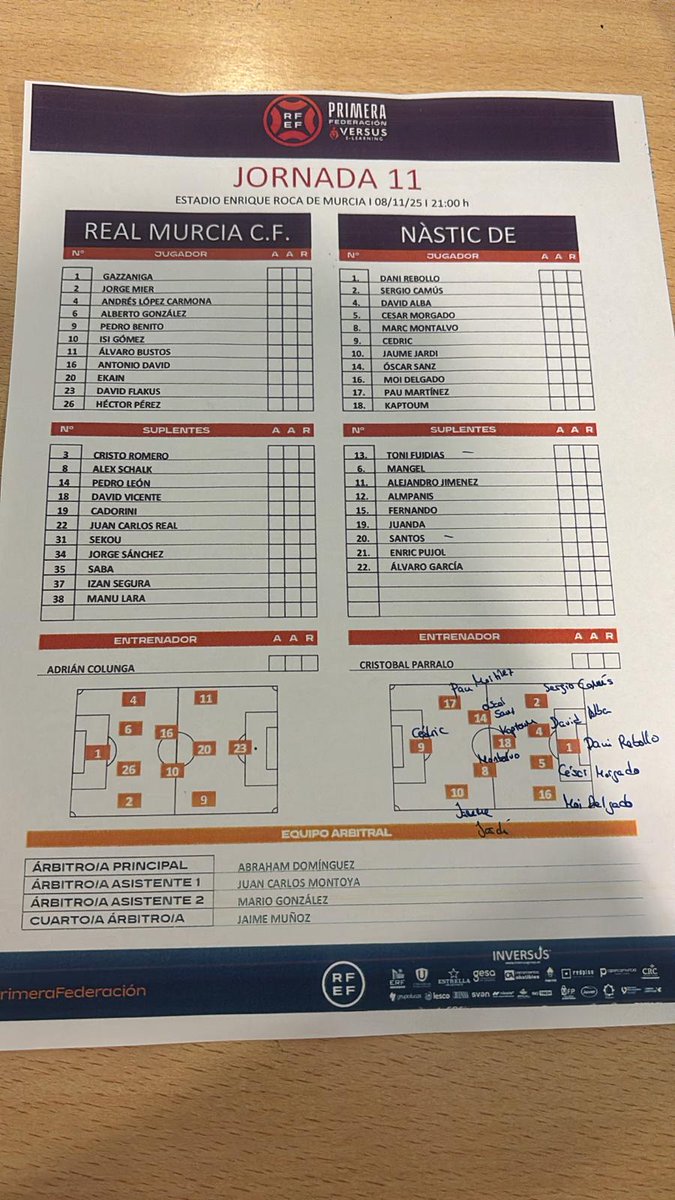 RFEF
PRIMERA
FEDERACIÓN
VERSUS
E-LEARNING
JORNADA 11
ESTADIO ENRIQUE ROCA DE MURCIA I 08/11/25 I 21:00 h
REAL MURCIA C.F.
Nº JUGADOR A A R
1 GAZZANIGA
2 JORGE MIER
4 ANDRÉS LÓPEZ CARMONA
6 ALBERTO GONZÁLEZ
9 PEDRO BENITO
10 ISI GÓMEZ
11 ÁLVARO BUSTOS
16 ANTONIO DAVID
20 EKAIN
23 DAVID FLAKUS
26 HÉCTOR PÉREZ
Nº SUPLENTES A A R
3 CRISTO ROMERO
8 ALEX SCHALK
14 PEDRO LEÓN
18 DAVID VICENTE
19 CADORINI
22 JUAN CARLOS REAL
31 SEKOU
34 JORGE SÁNCHEZ
35 SABA
37 IZAN SEGURA
38 MANU LARA
ENTRENADOR A A R
ADRIÁN COLUNGA
4 11
6 16
1 20 23
26 10
2 9
NÀSTIC DE
Nº JUGADOR A A R
1. DANI REBOLLO
2. SERGIO CAMÚS
4. DAVID ALBA
5. CESAR MORGADO
8. MARC MONTALVO
9. CEDRIC
10. JAUME JARDI
14. ÓSCAR SANZ
16. MOI DELGADO
17. PAU MARTÍNEZ
18. KAPTOUM
Nº SUPLENTES A A R
13. TONI FUIDIAS
6. MANGEL
11. ALEJANDRO JIMENEZ
12. ALMPANIS
15. FERNANDO
19. JUANDA
20. SANTOS
21. ENRIC PUJOL
22. ÁLVARO GARCÍA
ENTRENADOR A A R
CRISTOBAL PARRALO
Pau Martínez
17
Sergio Camús
2
Oscar Sanz
14
David Alba
4
Cédric
9
Kaptoum
18
1 Dani Rebollo
Montalvo
8
5 César Morgado
10
16 Moi Delgado
Jaume
Jardí
EQUIPO ARBITRAL
ÁRBITRO/A PRINCIPAL ABRAHAM DOMÍNGUEZ
ÁRBITRO/A ASISTENTE 1 JUAN CARLOS MONTOYA
ÁRBITRO/A ASISTENTE 2 MARIO GONZÁLEZ
CUARTO/A ÁRBITRO/A JAIME MUÑOZ
rimeraFederación
RFEF
INVERSUS
ERF
ESTRELLA
gesa
CRC
grupolucas
lesco
svan